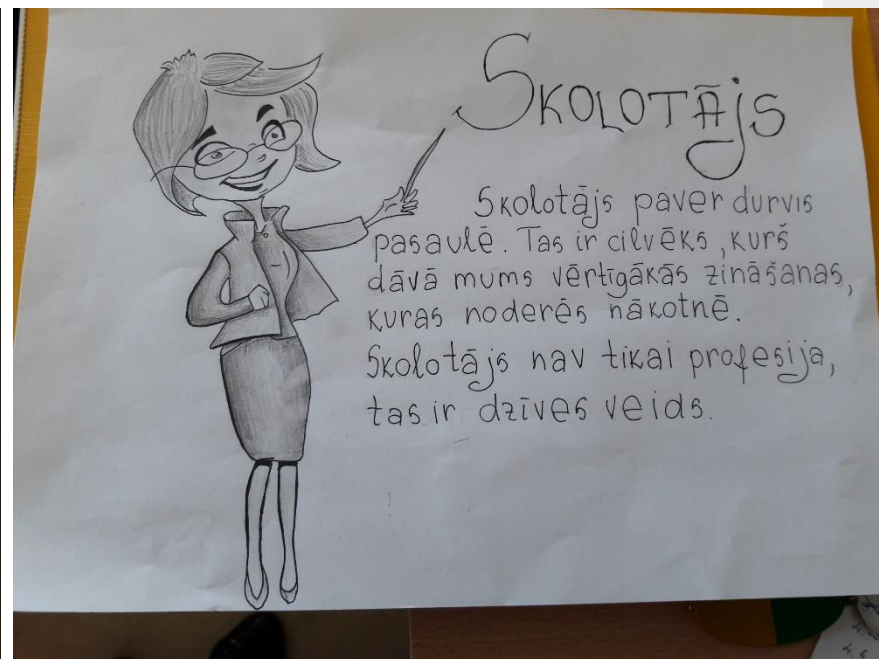 Skolotājs
Skolotājs paver durvis
pasaulē. Tas ir cilvēks, kurš
dāvā mums vērtīgākās zināšanas,
kuras noderēs nākotnē.
Skolotājs nav tikai profesija,
tas ir dzīves veids.